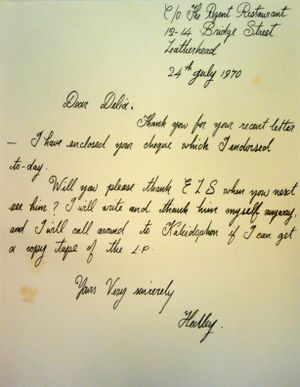 C/O The Regent Restaurant
12-14 Bridge Street
Leatherhead
24th July 1970
Dear Delia.
Thank you for your recent letter
— I have enclosed your cheque which I endorsed
to-day.
Will you please thank ELS when you next
see him? I will write and thank him myself anyway,
and I will call around to Kaleidophon if I can get
a copy tape of the L.P.
Yours Very sincerely
Hedley.